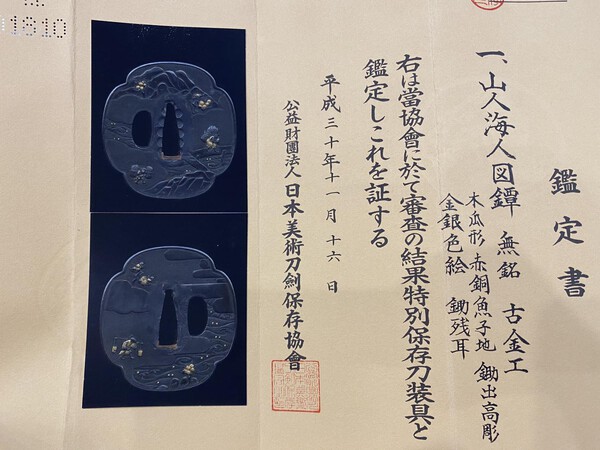 鑑定書
一、山人海人図鐔 無銘 古金工
木瓜形 赤銅魚子地 鋤出高彫
金銀色絵 鋤残耳
右は當協會に於て審査の結果特別保存刀装具と
鑑定しこれを証する
平成三十年十一月十六日
公益財團法人日本美術刀劍保存協會